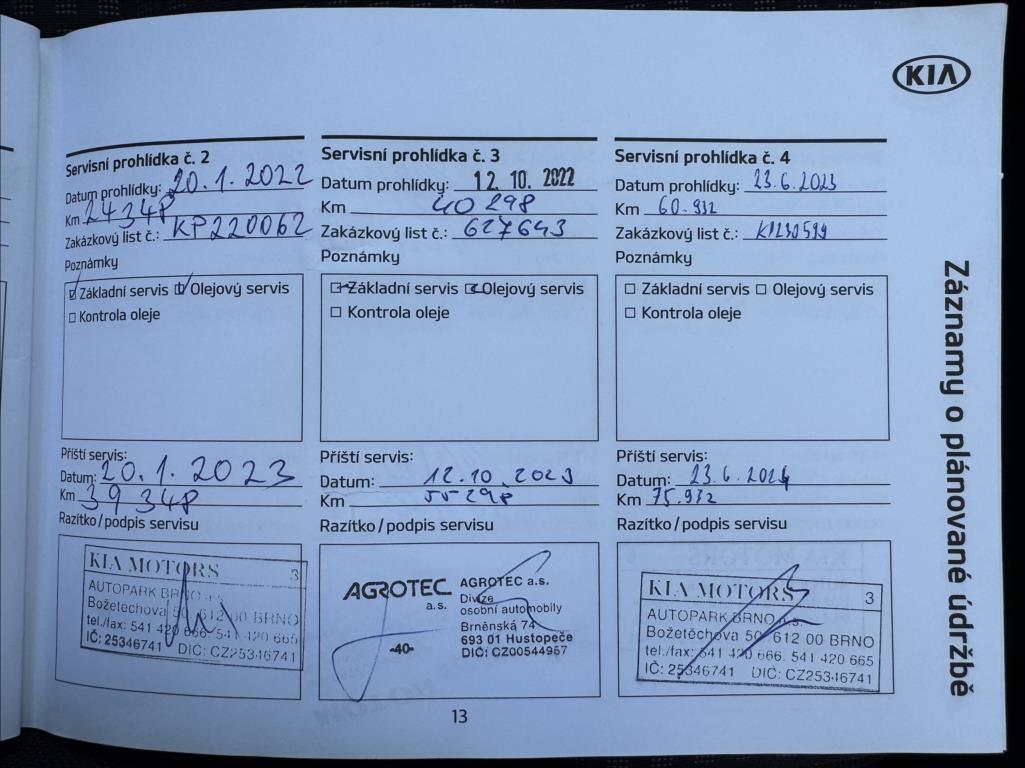 KIA
Servisní prohlídka č. 2
Datum prohlídky: 20.1.2022
Km 24348
Zakázkový list č.: KP220062
Poznámky
Základní servis Olejový servis
Kontrola oleje
Příští servis:
Datum: 20.1.2023
Km 39348
Razítko/podpis servisu
KIA MOTORS 3
AUTOPARK BRNO a.s.
Božetěchova 50, 612 00 BRNO
tel./fax: 541 420 666, 541 420 665
IČ: 25346741 DIČ: CZ25346741
Servisní prohlídka č. 3
Datum prohlídky: 12. 10. 2022
Km 40298
Zakázkový list č.: 627643
Poznámky
Základní servis Olejový servis
Kontrola oleje
Příští servis:
Datum: 12.10.2023
Km 55298
Razítko/podpis servisu
AGROTEC
a.s.
-40-
AGROTEC a.s.
Divize
osobní automobily
Brněnská 74
693 01 Hustopeče
DIČ: CZ00544957
Servisní prohlídka č. 4
Datum prohlídky: 23.6.2023
Km 60.932
Zakázkový list č.:
Poznámky
Základní servis Olejový servis
Kontrola oleje
Příští servis:
Datum: 23.6.2024
Km 75.932
Razítko/podpis servisu
KIA MOTORS 3
AUTOPARK BRNO a.s.
Božetěchova 50, 612 00 BRNO
tel./fax: 541 420 666, 541 420 665
IČ: 25346741 DIČ: CZ25346741
Záznamy o plánované údržbě
13